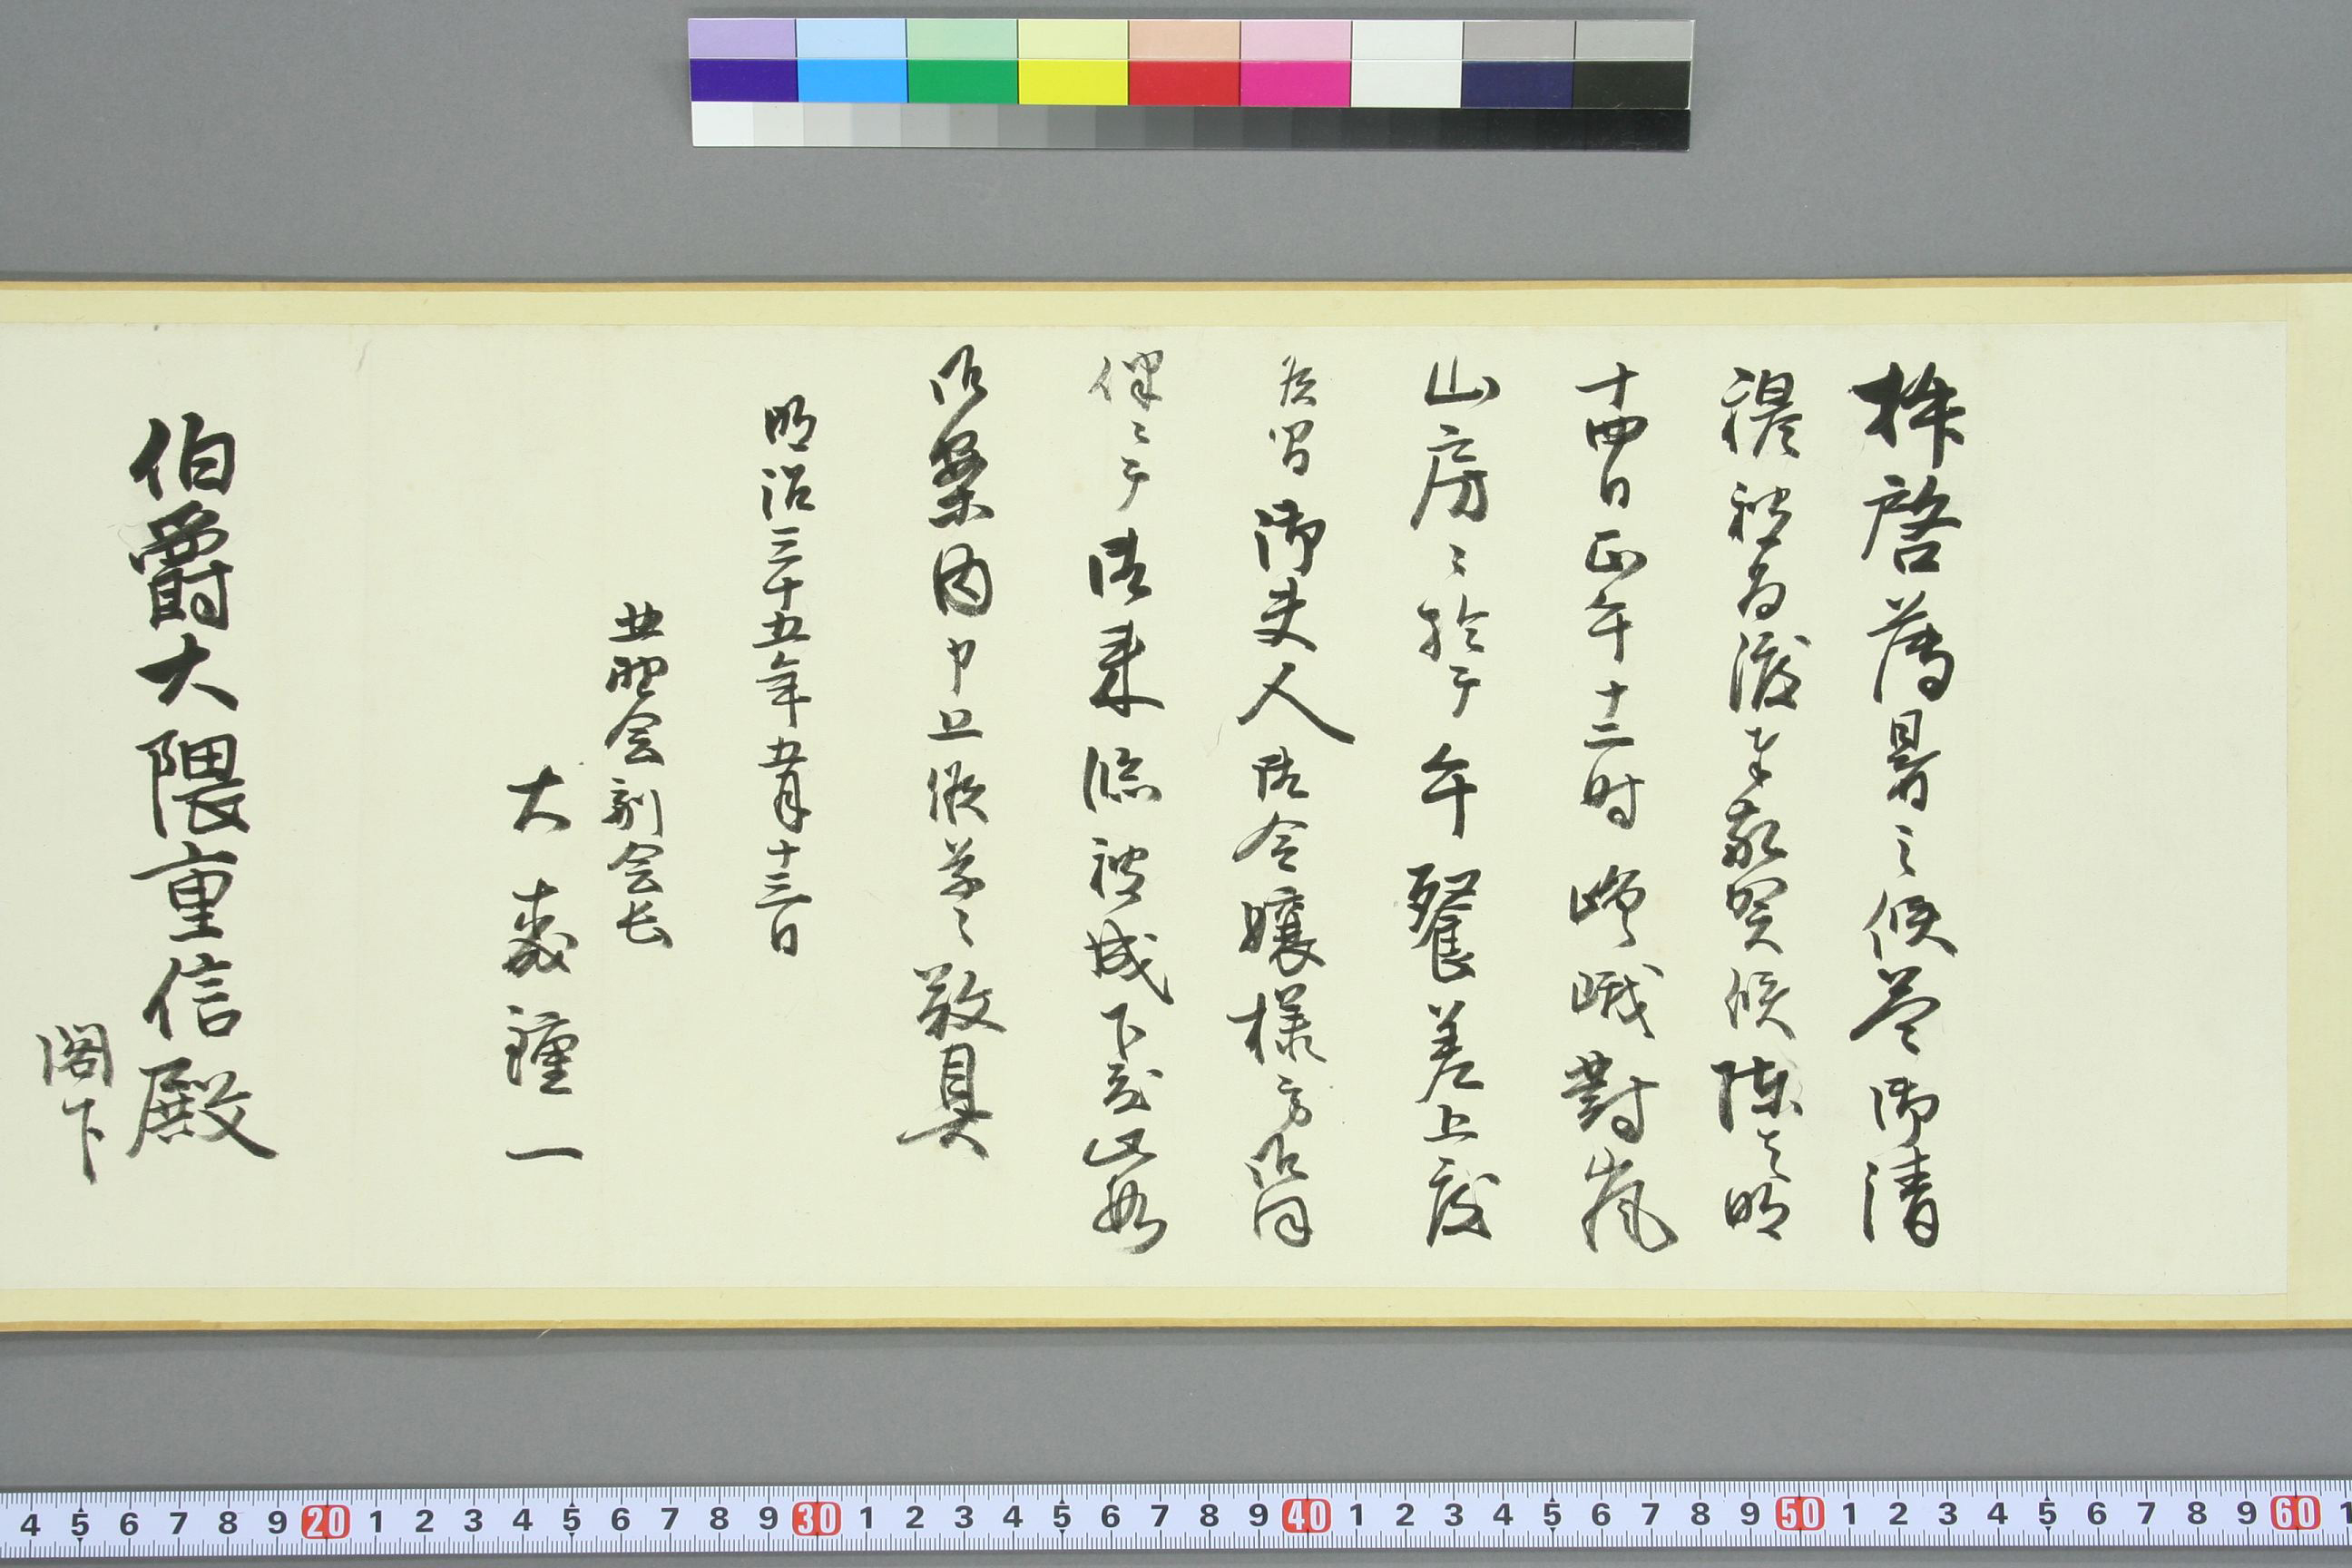 拝啓薄暑之候益御清
穆被為渡奉敬賀候陳者明
十四日正午十二時嵯峨對嵐
山房ニ於テ午餐差上度
候間御夫人御令嬢様方御同
伴ニテ御来臨被成下度此段
御案内申上候草々敬具
明治三十五年五月十三日
会副会長
大森鍾一
伯爵大隈重信殿
閣下
4 5 6 7 8 9 20 1 2 3 4 5 6 7 8 9 30 1 2 3 4 5 6 7 8 9 40 1 2 3 4 5 6 7 8 9 50 1 2 3 4 5 6 7 8 9 60 1